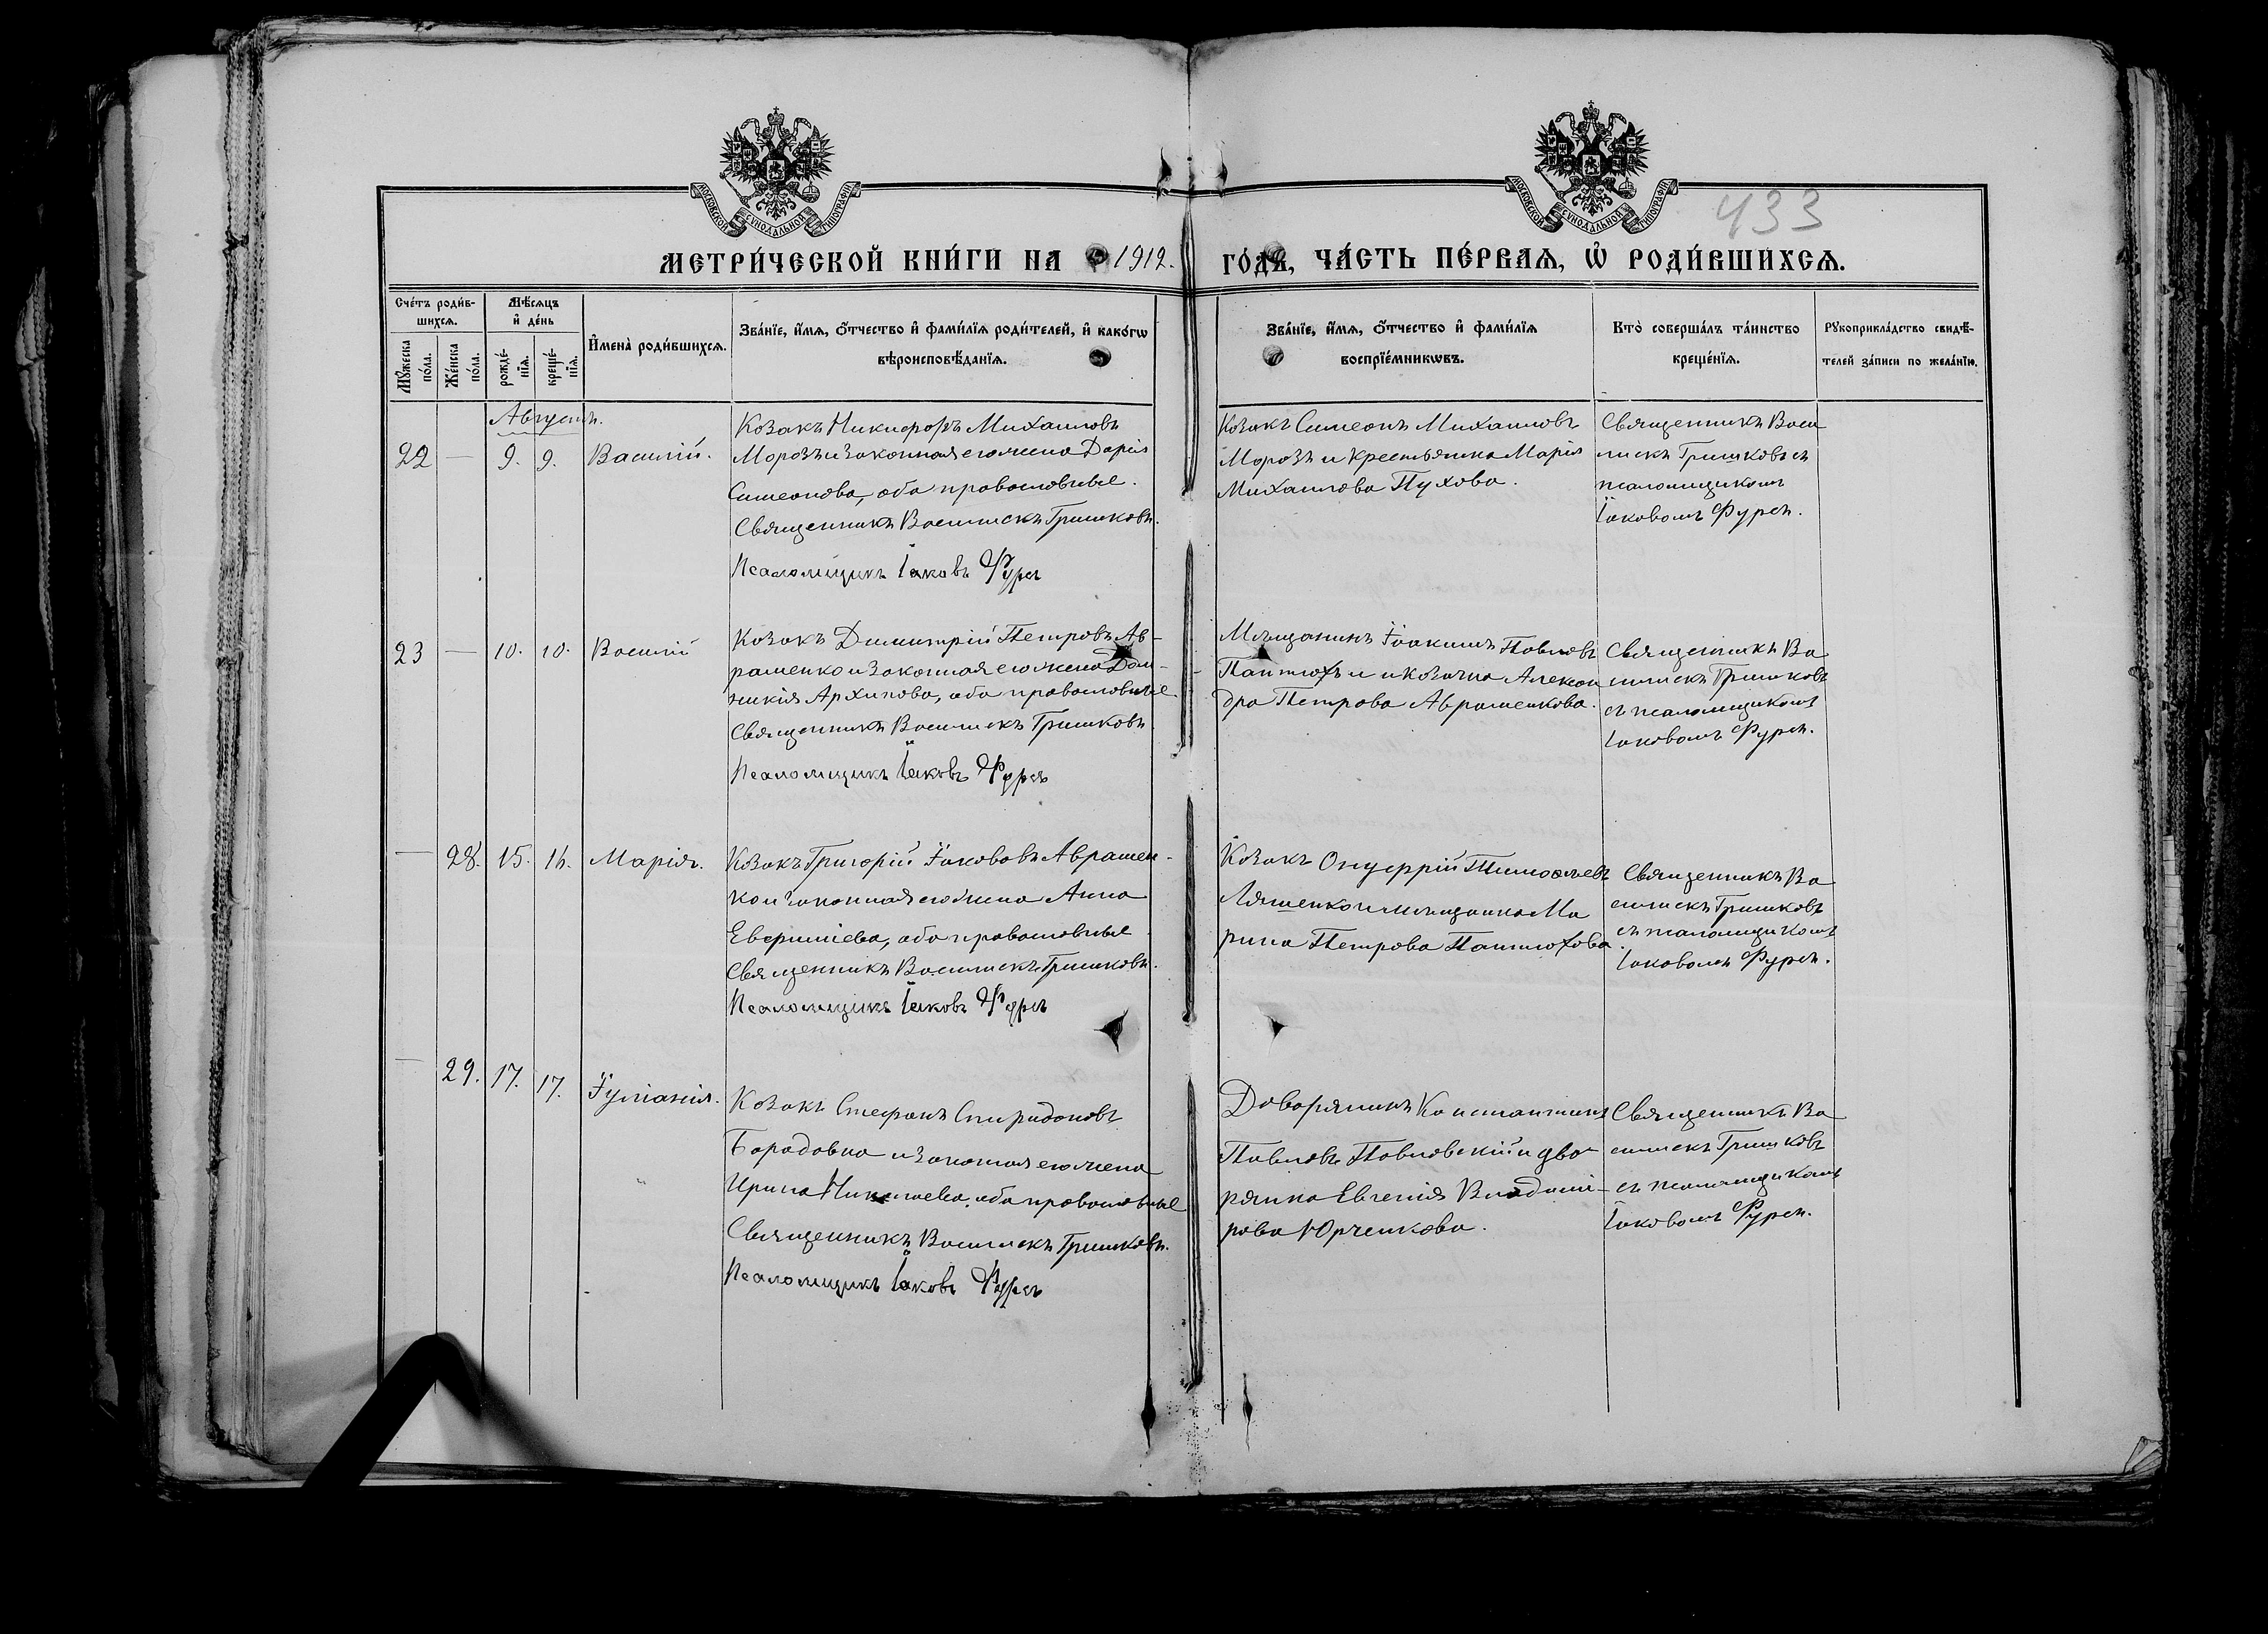 МОСКОВСКОЙ СѴНОДАЛЬНОЙ ТИПОГРАФІИ
МОСКОВСКОЙ СѴНОДАЛЬНОЙ ТИПОГРАФІИ
433
МЕТРИ́ЧЕСКОЙ КНИ́ГИ НА 1912.
ГО́ДЪ, ЧА́СТЬ ПЕ́РВАЯ, Ѡ҆ РОДИ́ВШИХСѦ.
Сче́тъ роди́в-
шихсѧ.
Мꙋ́жеска по́ла.
Же́нска по́ла.
Мѣ́сѧцъ
и҆ де́нь
рожде́-
нїѧ.
креще́-
нїѧ.
И҆мена̀ роди́вшихсѧ.
Зва́нїе, и҆́мѧ, о҆́тчество и҆ фами́лїѧ роди́телей, и҆ како́гѡ
вѣроисповѣ́данїѧ.
Зва́нїе, и҆́мѧ, о҆́тчество и҆ фами́лїѧ
воспрїе́мникѡвъ.
Кто̀ соверша́лъ та́инство
креще́нїѧ.
Рꙋкоприкла́дство свидѣ́-
телей за́писи по жела́нїю.
Августъ.
22 — 9. 9. Василій.
Козакъ Никифоръ Михаиловъ
Морозъ и законная его жена Дарія
Симеонова, оба православные.
Священникъ Василискъ Гришковъ.
Псаломщикъ Іаковъ Фурсъ
Козакъ Симеонъ Михаиловъ
Морозъ и крестьянка Марія
Михаилова Пухова.
Священникъ Васи
лискъ Гришковъ съ
псаломщикомъ
Іаковомъ Фурсъ.
23 — 10. 10. Василій
Козакъ Димитрій Петровъ Ав-
раменко и законная его жена Дом-
никія Архипова, оба православные.
Священникъ Василискъ Гришковъ
Псаломщикъ Іаковъ Фурсъ
Мѣщанинъ Іоакимъ Павловъ
Пантюхъ и козачка Алексан
дра Петрова Авраменкова.
Священникъ Ва
силискъ Гришковъ
съ псаломщикомъ
Іаковомъ Фурсъ.
— 28. 15. 16. Марія.
Козакъ Григорій Іакововъ Аврамен-
ко и законная его жена Анна
Евфиміева, оба православные.
Священникъ Василискъ Гришковъ.
Псаломщикъ Іаковъ Фурсъ
Козакъ Онуфрій Тимофѣевъ
Ляшенко и мѣщанка Ма
рина Петрова Пантюхова.
Священникъ Ва
силискъ Гришковъ
съ псаломщикомъ
Іаковомъ Фурсъ.
— 29. 17. 17. Іуліанія.
Козакъ Стефанъ Спиридоновъ
Бородавка и законная его жена
Ирина Николаева, оба православные
Священникъ Василискъ Гришковъ.
Псаломщикъ Іаковъ Фурсъ
Дворянинъ Константинъ
Павловъ Павловскій и дво-
рянка Евгенія Владими-
рова Юрченкова.
Священникъ Ва
силискъ Гришковъ
съ псаломщикомъ
Іаковомъ Фурсъ.